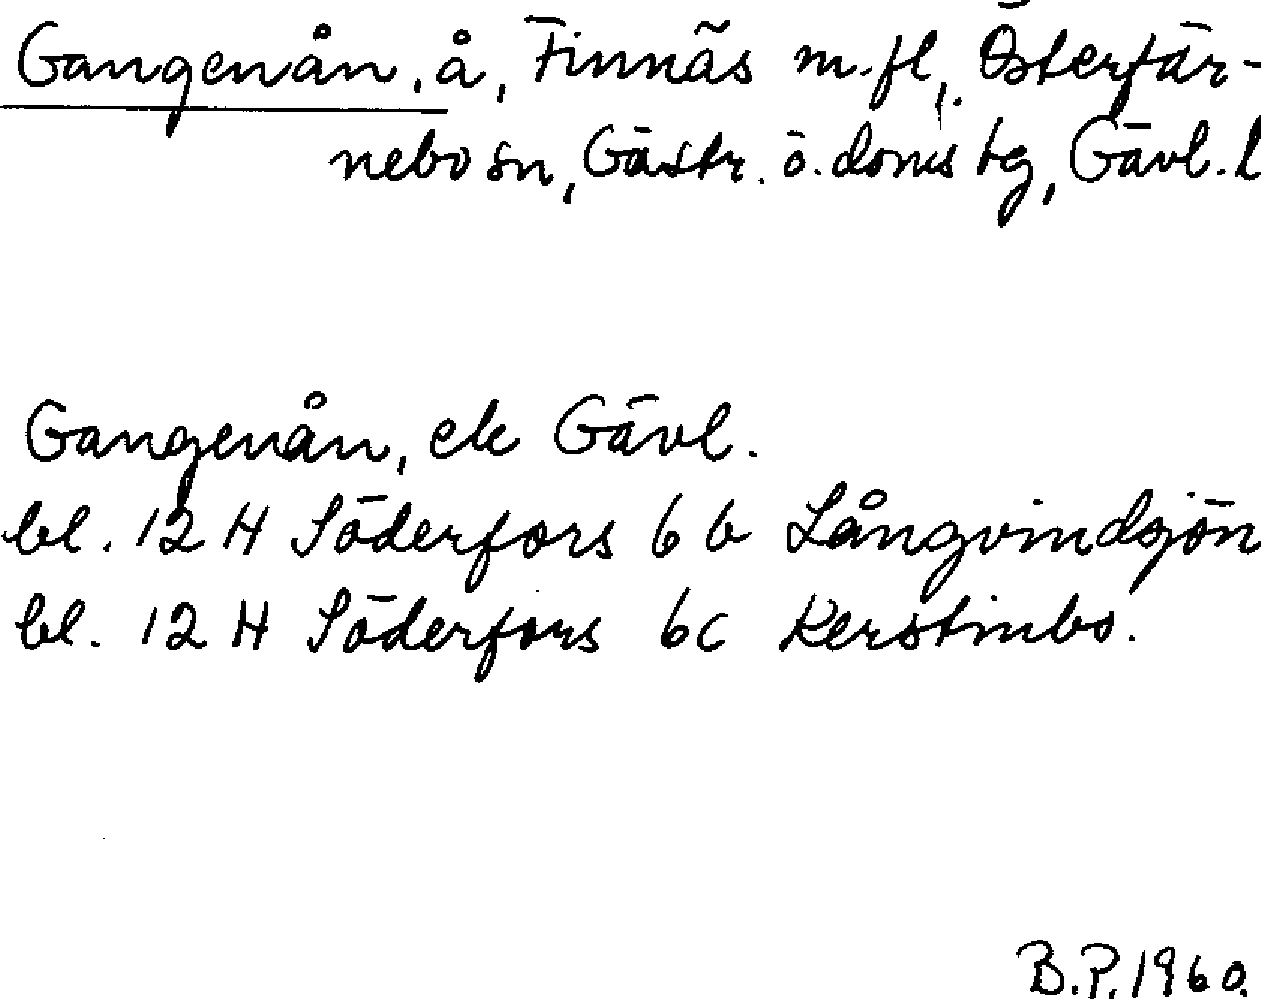 Gangenån, å, Finnäs m.fl., Österfär-
nebo sn, Gästr. ö. doms tg, Gävl. l
Gangenån, ek Gävl.
bl. 12 H Söderfors 6 b Långvindsjön
bl. 12 H Söderfors 6c Kerstinbo.
B.P. 1960.